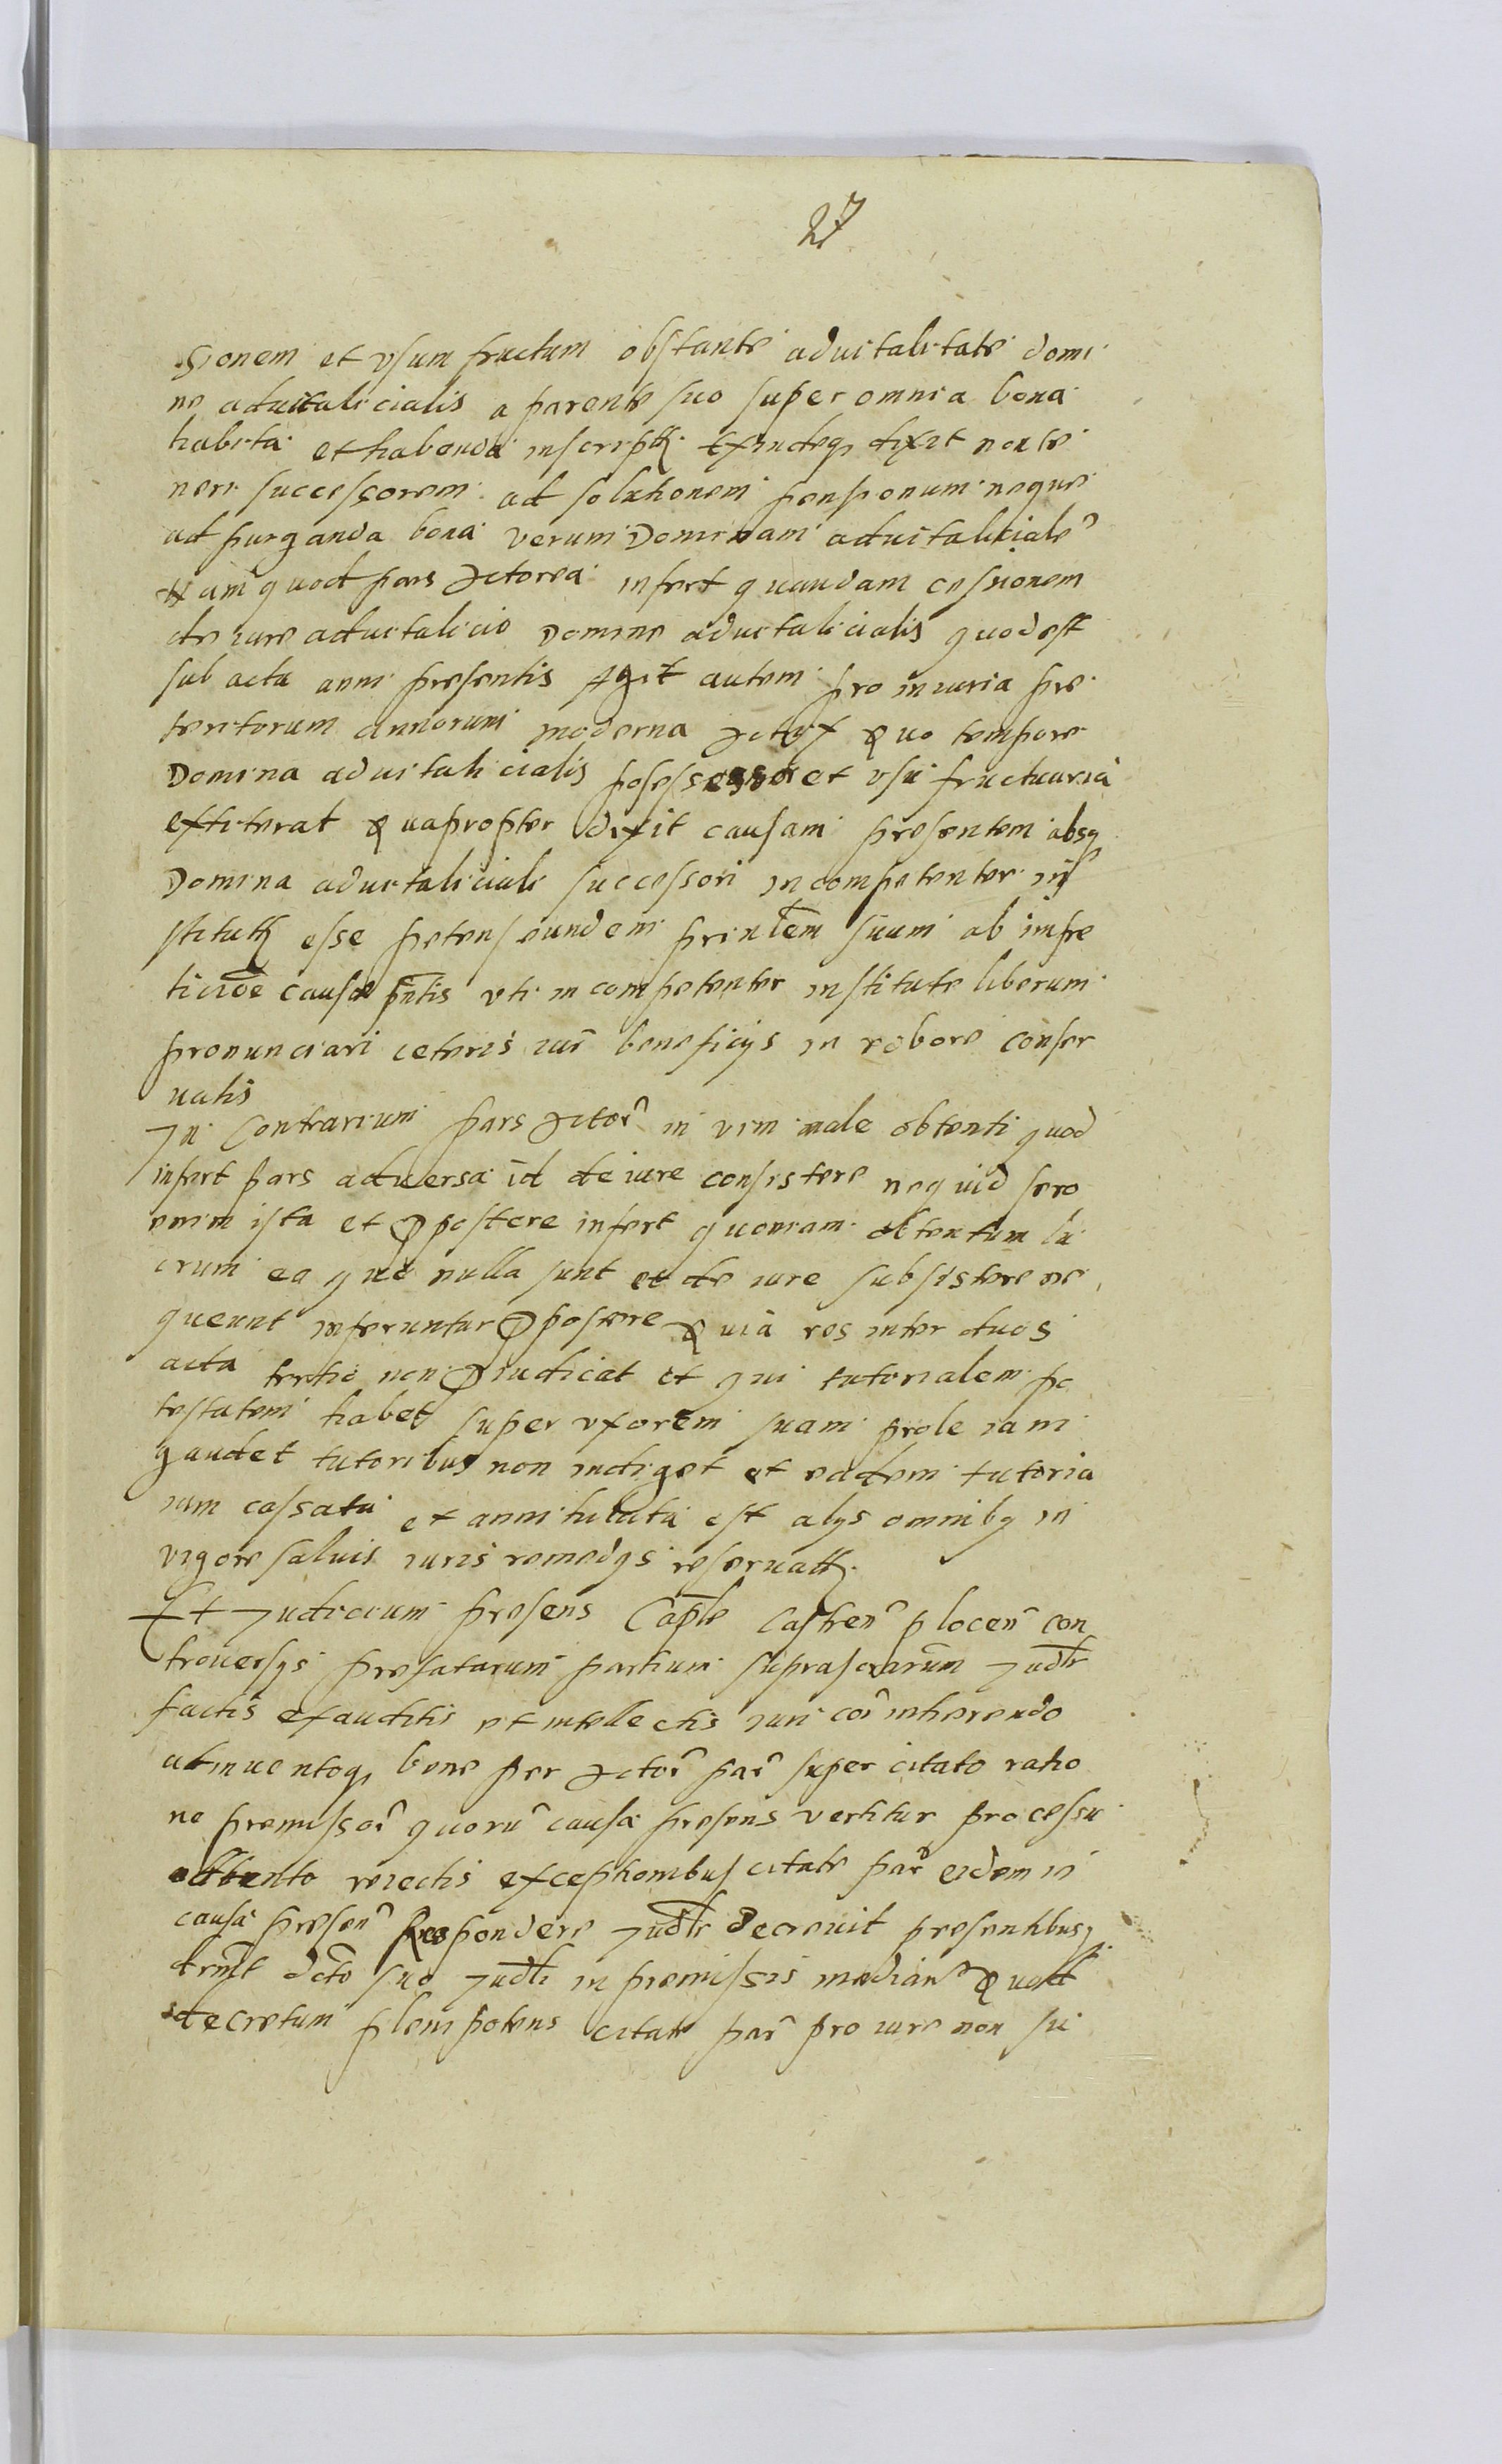 27
sionem et vsum fructum obstante aduitalitate domi
ne aduitalicialis a parente suo super omnia bona
habita et habenda inscript Exindeq dixit non te
neri successorem ad solutionem pensionum neque
ad purganda bona verum Dominam aduitaliciale
Nam quod pars Actorea infert quandam cessionem
de iure aduitalicio Domine aduitalicialis quod est
sub acta anni presentis Agit autem pro iniuria pre
teritorum annorum moderna Actrix Quo tempore
Domina aduitalicialis posessessor et vsu fructuaria
extiterat Quapropter dixit causam presentem absq
Domina aduitaliciali successori incompetenter in
stitut esse petens eundem prinlem suum ab impe
ticioe cause pntis vti incompetenter institute liberum
pronunciari ceteris iur beneficijs in robore conser
uatis
In Contrarium pars Actor in vim male obtenti quod
infert pars aduersa id de iure consistere nequid sero
enim ista et postere infert quoniam obtentum lu
crum ea que nulla sunt et de iure subsistere ne
queunt inferuntur postere Quia res inter duos
acta tertio non iudicat et qui tutorialem po
testatem habet super vxorem suam prole iam
gaudet tutoribus non indiget et eadem tutoria
iam cassata et annihilata est alys omnibq in
vigore saluis iuris remedys reseruatt
Et Judicium presens Caple Castren plocen con
trouersys prefatarum partium suprascrarum Judlr
factis exauditis et intellectis iuri coi inherendo
adinuentoq bene per Actor par super citato ratio
ne premissor quoru causa presens vertitur processu
obtento reiectis exceptionibus citate par eidem in
causa presen Respondere Judlr Decreuit presentibusq
decretum plenipotens citate par pro iure non su